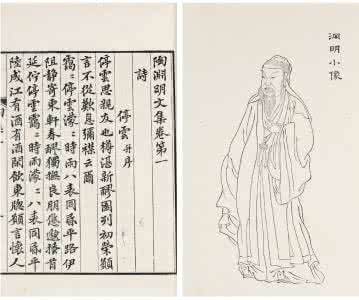 淵明小像
陶淵明文集卷第一
詩
停雲 并序
停雲思親友也樽湛新醪園列初榮願
言不從歎息彌襟云爾
靄〻停雲濛〻時雨八表同昏平路伊
阻靜寄東軒春醪獨撫良朋悠邈搔首
延佇停雲靄〻時雨濛〻八表同昏平
陸成江有酒有酒閒飲東牕願言懷人